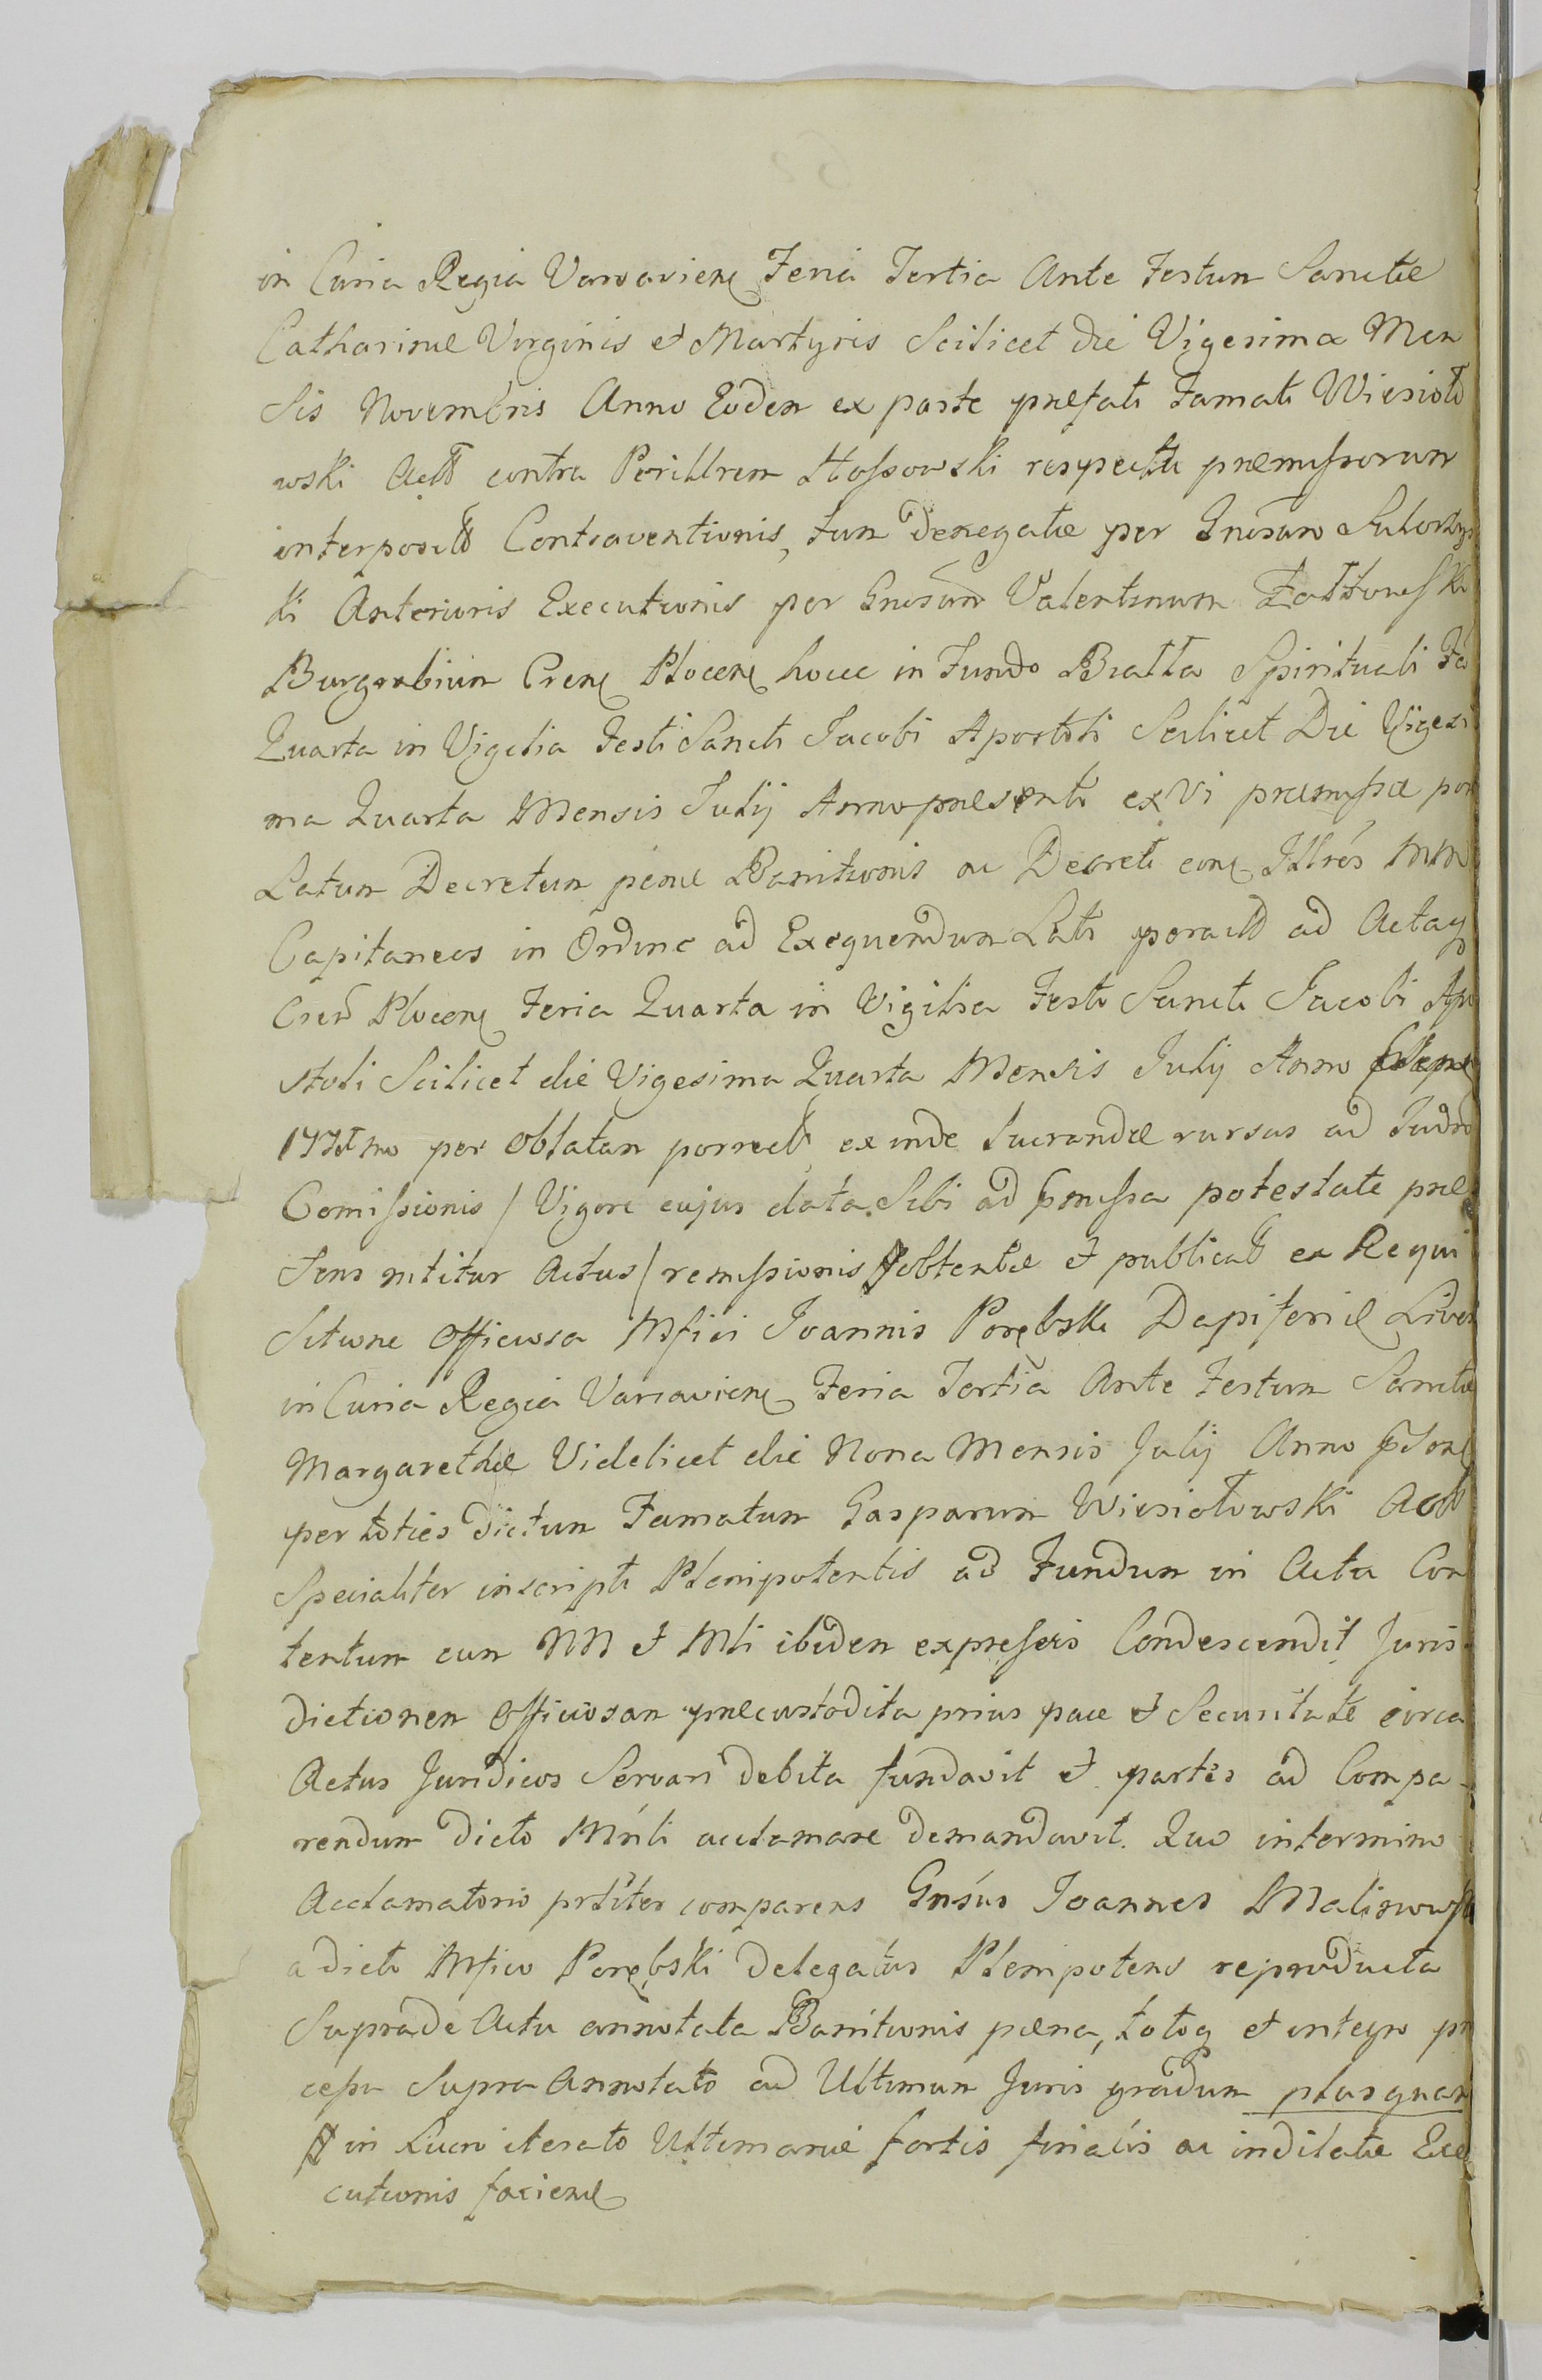 in Curia Regia Varsavien Feria Tertia Ante Festum Sanctæ
Catharinæ Virginis et Martyris Scilicet die Vigesima Men
sis Novembris Anno Eodem ex parte præfati Famati Wiesioło
wski Act contra Perillrem Hossowski respectu præmissorum
interposit Contraventionis, tum denegatæ per Gnosum
ki Anterioris Executionis per Gnosum Valentinum
Burgrabium Cren Plocen hocce in Fundo Biała Spirituali Fa
Quarta in Vigilia Festi Sancti Jacobi Apostoli Scilicet Die Vigesi
ma Quarta Mensis Julij Anno præsenti ex Vi præmissæ por
Latum Decretum pænæ Banitionis ac Decreti Illres MM
Capitaneos in Ordine ad Exequendum Lati peract ad Acta
Cren Plocen Feria Quarta in Vigilia Festi Sancti Jacobi Apo
stoli Scilicet die Vigesima Quarta Mensis Julij Anno
per Oblatam porrect, exinde Lucrandæ rursus ad Judm
Comissionis / Vigore cujus data Sibi ad pmissa potestate præ
sens nititur Actus / remissionis obtentæ et publicat ex Requi
sitione Officiosa Mfici Joannis Porębski Dapiferi Liven
in Curia Regia Varsavien Feria Tertia Ante Festum Sanctæ
Margarethæ Videlicet die Nona Mensis Julij Anno
per toties dictum Famatum Gasparum Wiesiołowski Act
Specialiter inscripti Plenipotentis ad Fundum in Actu Con
tentum cum NN et Mli ibidem expressis Condescendit Juris
dictionem Officiosam præcustodita prius pace et Securitate circa
Actus Juridicos Servari debita fundavit et partes ad Compa-
rendum dicto Mnli acclamare demandavit. Quo in termino
Acclamatorio prliter comparens Gnsus Joannes Malinowski
a dicto Mfico Porębski delegatus Plenipotens reproducta
Suprade Actu annotata Banitionis pæna, totoq et integro pro
cessu Supra Annotato ad Ultimum Juris gradum plusquam
in Lucro iterato Ultimariæ fortis finalis ac indilatæ Exe
cutionis facien